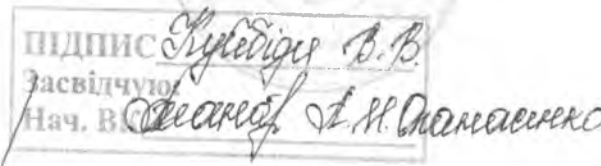 ПІДПИС Куйбіди В.В.
Засвідчую:
Нач. ВК А.И. Опанасенко